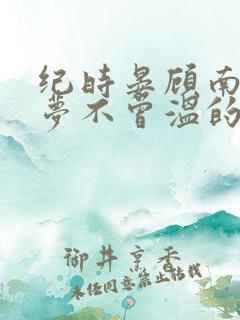 纪时晏顾南
梦不曾温的
御井烹香
未经同意禁止转载